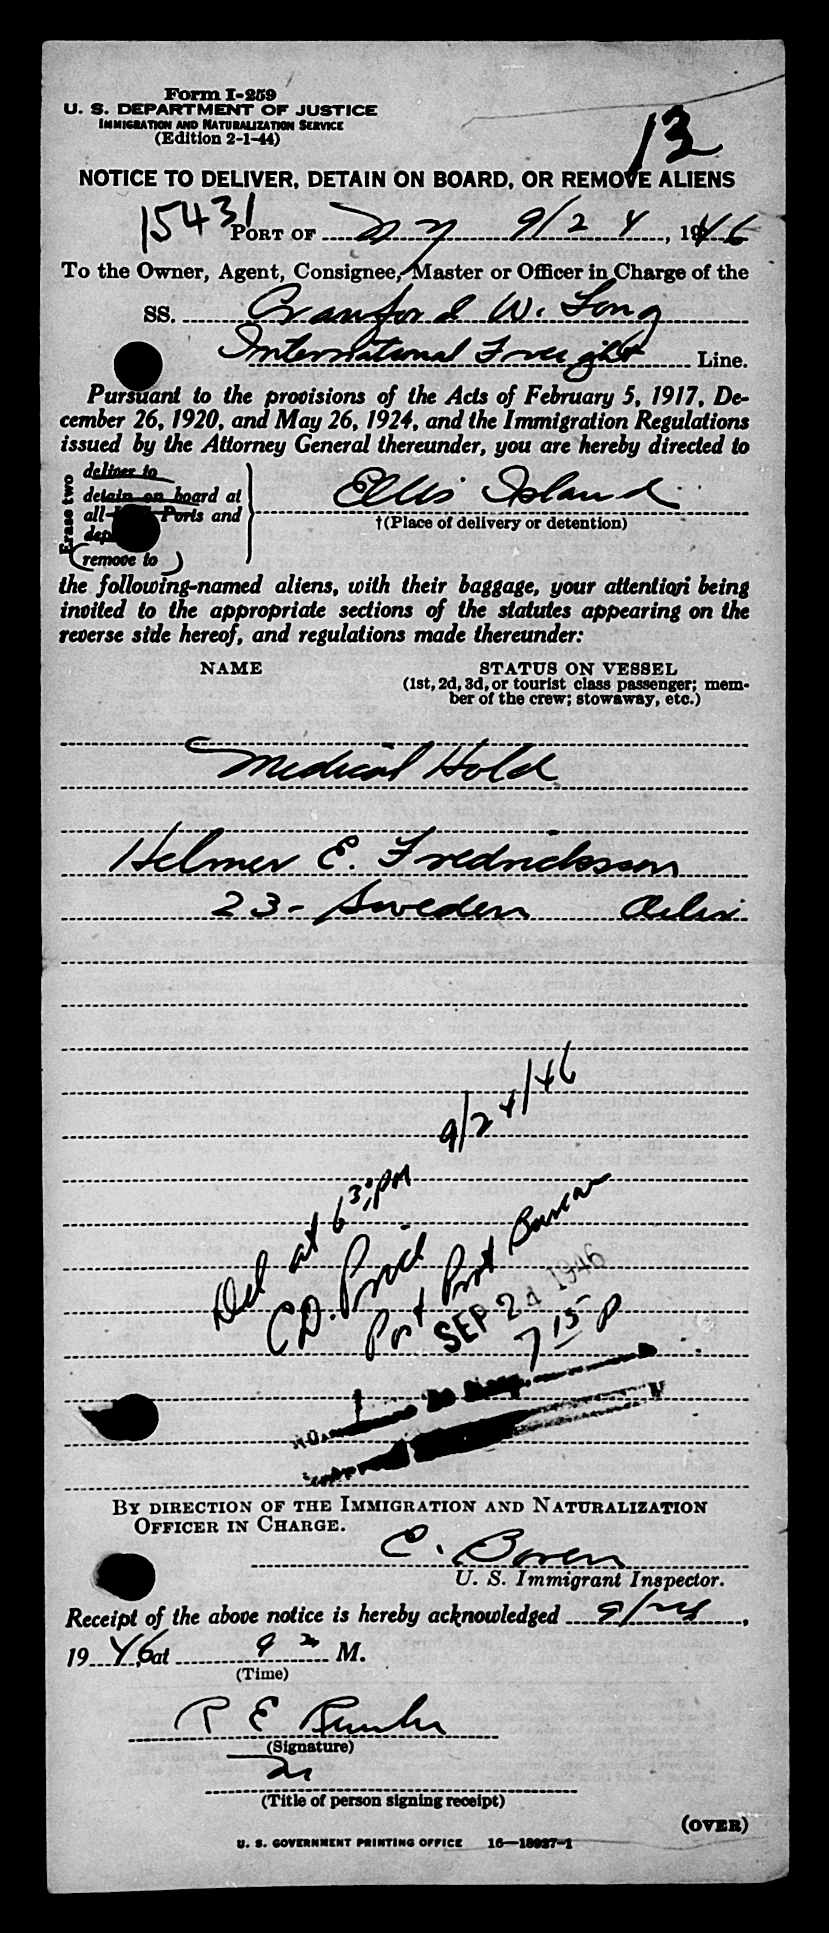 Form I-259
U. S. DEPARTMENT OF JUSTICE
IMMIGRATION AND NATURALIZATION SERVICE
(Edition 2-1-44)
13
NOTICE TO DELIVER, DETAIN ON BOARD, OR REMOVE ALIENS
15431
PORT OF NY 9/24, 1946
To the Owner, Agent, Consignee, Master or Officer in Charge of the
SS. Crawford W. Long
International Freight Line.
Pursuant to the provisions of the Acts of February 5, 1917, De-
cember 26, 1920, and May 26, 1924, and the Immigration Regulations
issued by the Attorney General thereunder, you are hereby directed to
Erase two
deliver to
detain on board at
all Ports and
remove to
Ellis Island
†(Place of delivery or detention)
the following-named aliens, with their baggage, your attention being
invited to the appropriate sections of the statutes appearing on the
reverse side hereof, and regulations made thereunder:
NAME STATUS ON VESSEL
(1st, 2d, 3d, or tourist class passenger; mem-
ber of the crew; stowaway, etc.)
Medical Hold
Helmer E. Fredricksson
23 - Sweden
9/24/46
Del at 6 30 PM
C.D. Price
Port Prot Bureau
SEP 24 1946
7 15 P
BY DIRECTION OF THE IMMIGRATION AND NATURALIZATION
OFFICER IN CHARGE.
C. Boren
U. S. Immigrant Inspector.
Receipt of the above notice is hereby acknowledged 9/24,
1946, at 9 M.
(Time)
R E
(Signature)
(Title of person signing receipt)
(OVER)
U. S. GOVERNMENT PRINTING OFFICE 16—18937-1